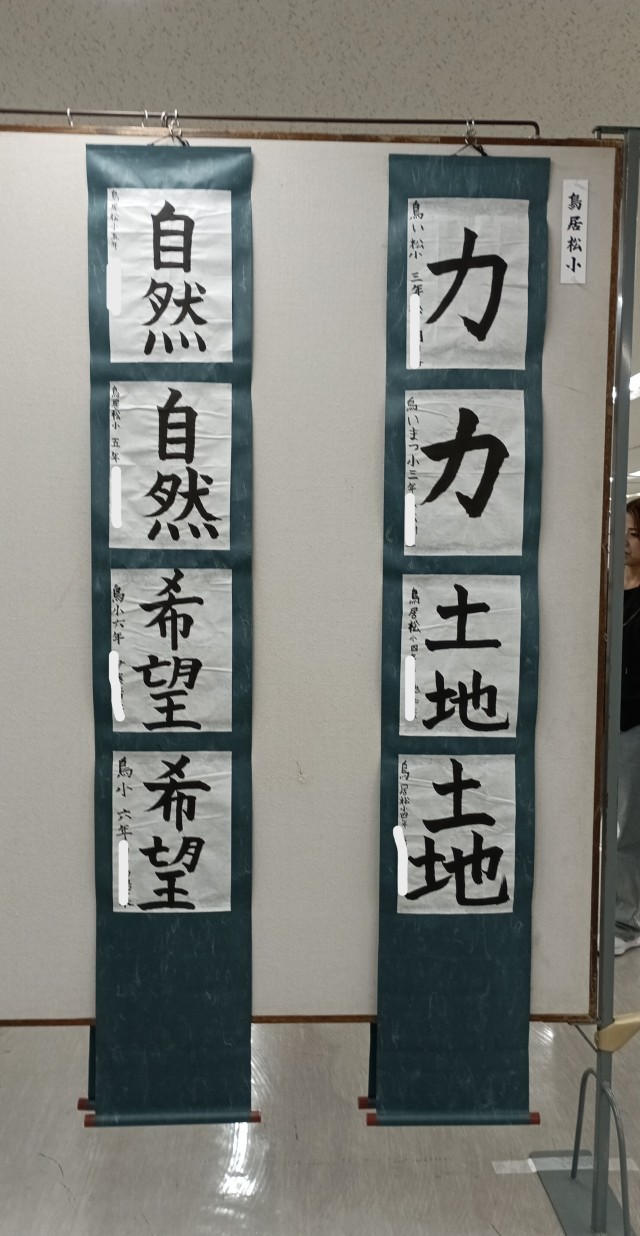 鳥居松小
力
鳥い松小 三年
力
鳥いまつ小三年
土地
鳥居松小四年
土地
鳥居松小四年
自然
鳥居松小五年
自然
鳥居松小 五年
希望
鳥小六年
希望
鳥小 六年